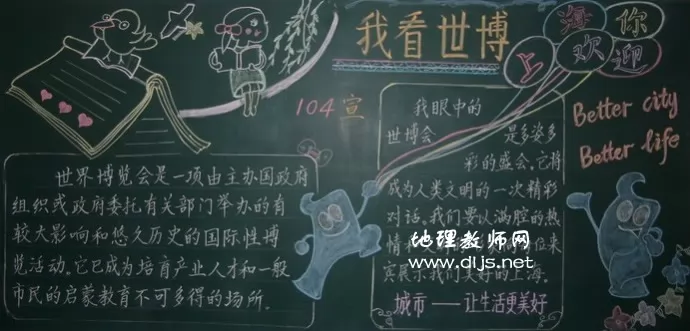 我看世博
上海欢迎你
104宣
Better city
Better life
世界博览会是一项由主办国政府
组织或政府委托有关部门举办的有
较大影响和悠久历史的国际性博
览活动。它已成为培育产业人才和一般
市民的启蒙教育不可多得的场所.
我眼中的
世博会 是多姿多
彩的盛会。它将
成为人类文明的一次精彩
对话。我们要以满腔的热
情 位来
宾展示我们美好的上海。
城市——让生活更美好
地理教师网
www.dljs.net